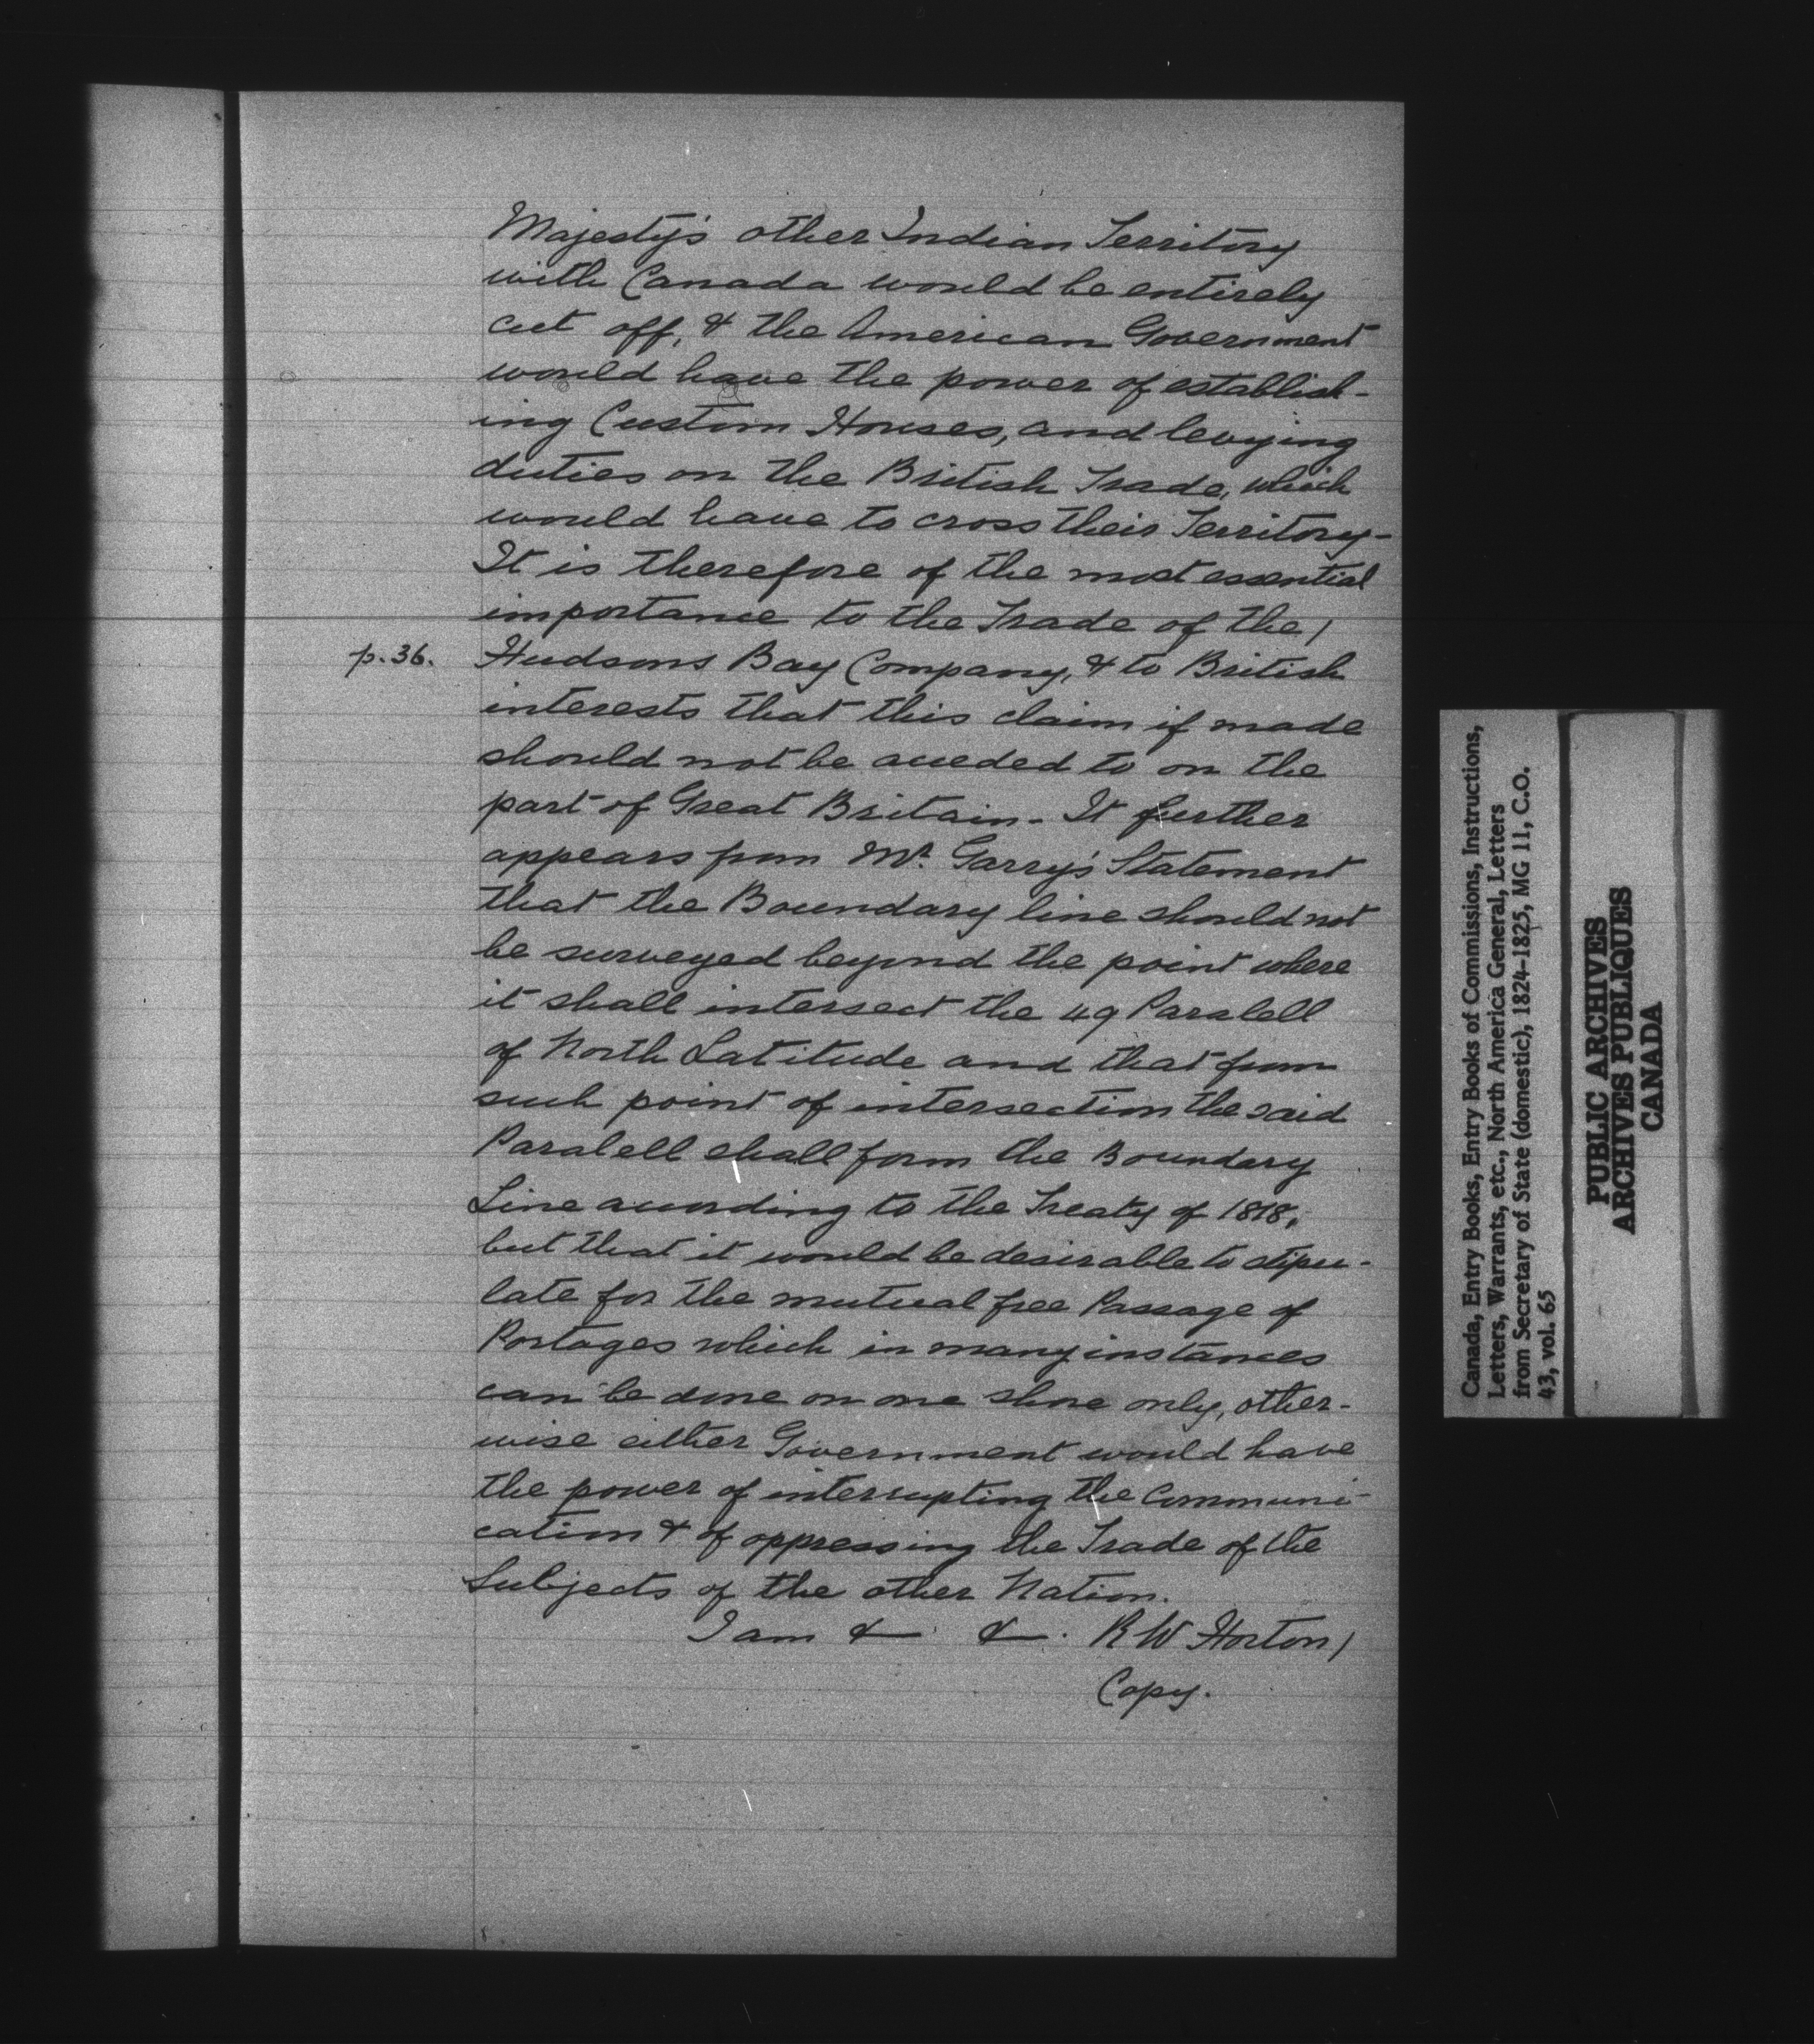 Majesty's other Indian Territory
with Canada would be entirely
cut off, & the American Government
would have the power of establish-
ing Custom Houses, and levying
duties on the British Trade, which
would have to cross their Territory-
It is therefore of the most essential
importance to the Trade of the /
p. 36. Hudsons Bay Company, & to British
interests that this claim if made
should not be acceded to on the
part of Great Britain - It further
appears from Mr. Garry's Statement
that the Boundary line should not
be surveyed beyond the point where
it shall intersect the 49 Paralell
of North Latitude and that from
such point of intersection the said
Paralell shall form the Boundery
Line according to the Treaty of 1818,
but that it would be desirable to stipu-
late for the mutual free Passage of
Portages which in many instances
can be done on one shore only, other-
wise either Government would have
the power of interrupting the Communi-
cation & of oppressing the Trade of the
Subjects of the other Nation.
I am & &. R W Horton /
Copy.
Canada, Entry Books, Entry Books of Commissions, Instructions,
Letters, Warrants, etc., North America General, Letters
from Secretary of State (domestic), 1824-1825, MG 11, C.O.
43, vol. 65
PUBLIC ARCHIVES
ARCHIVES PUBLIQUES
CANADA